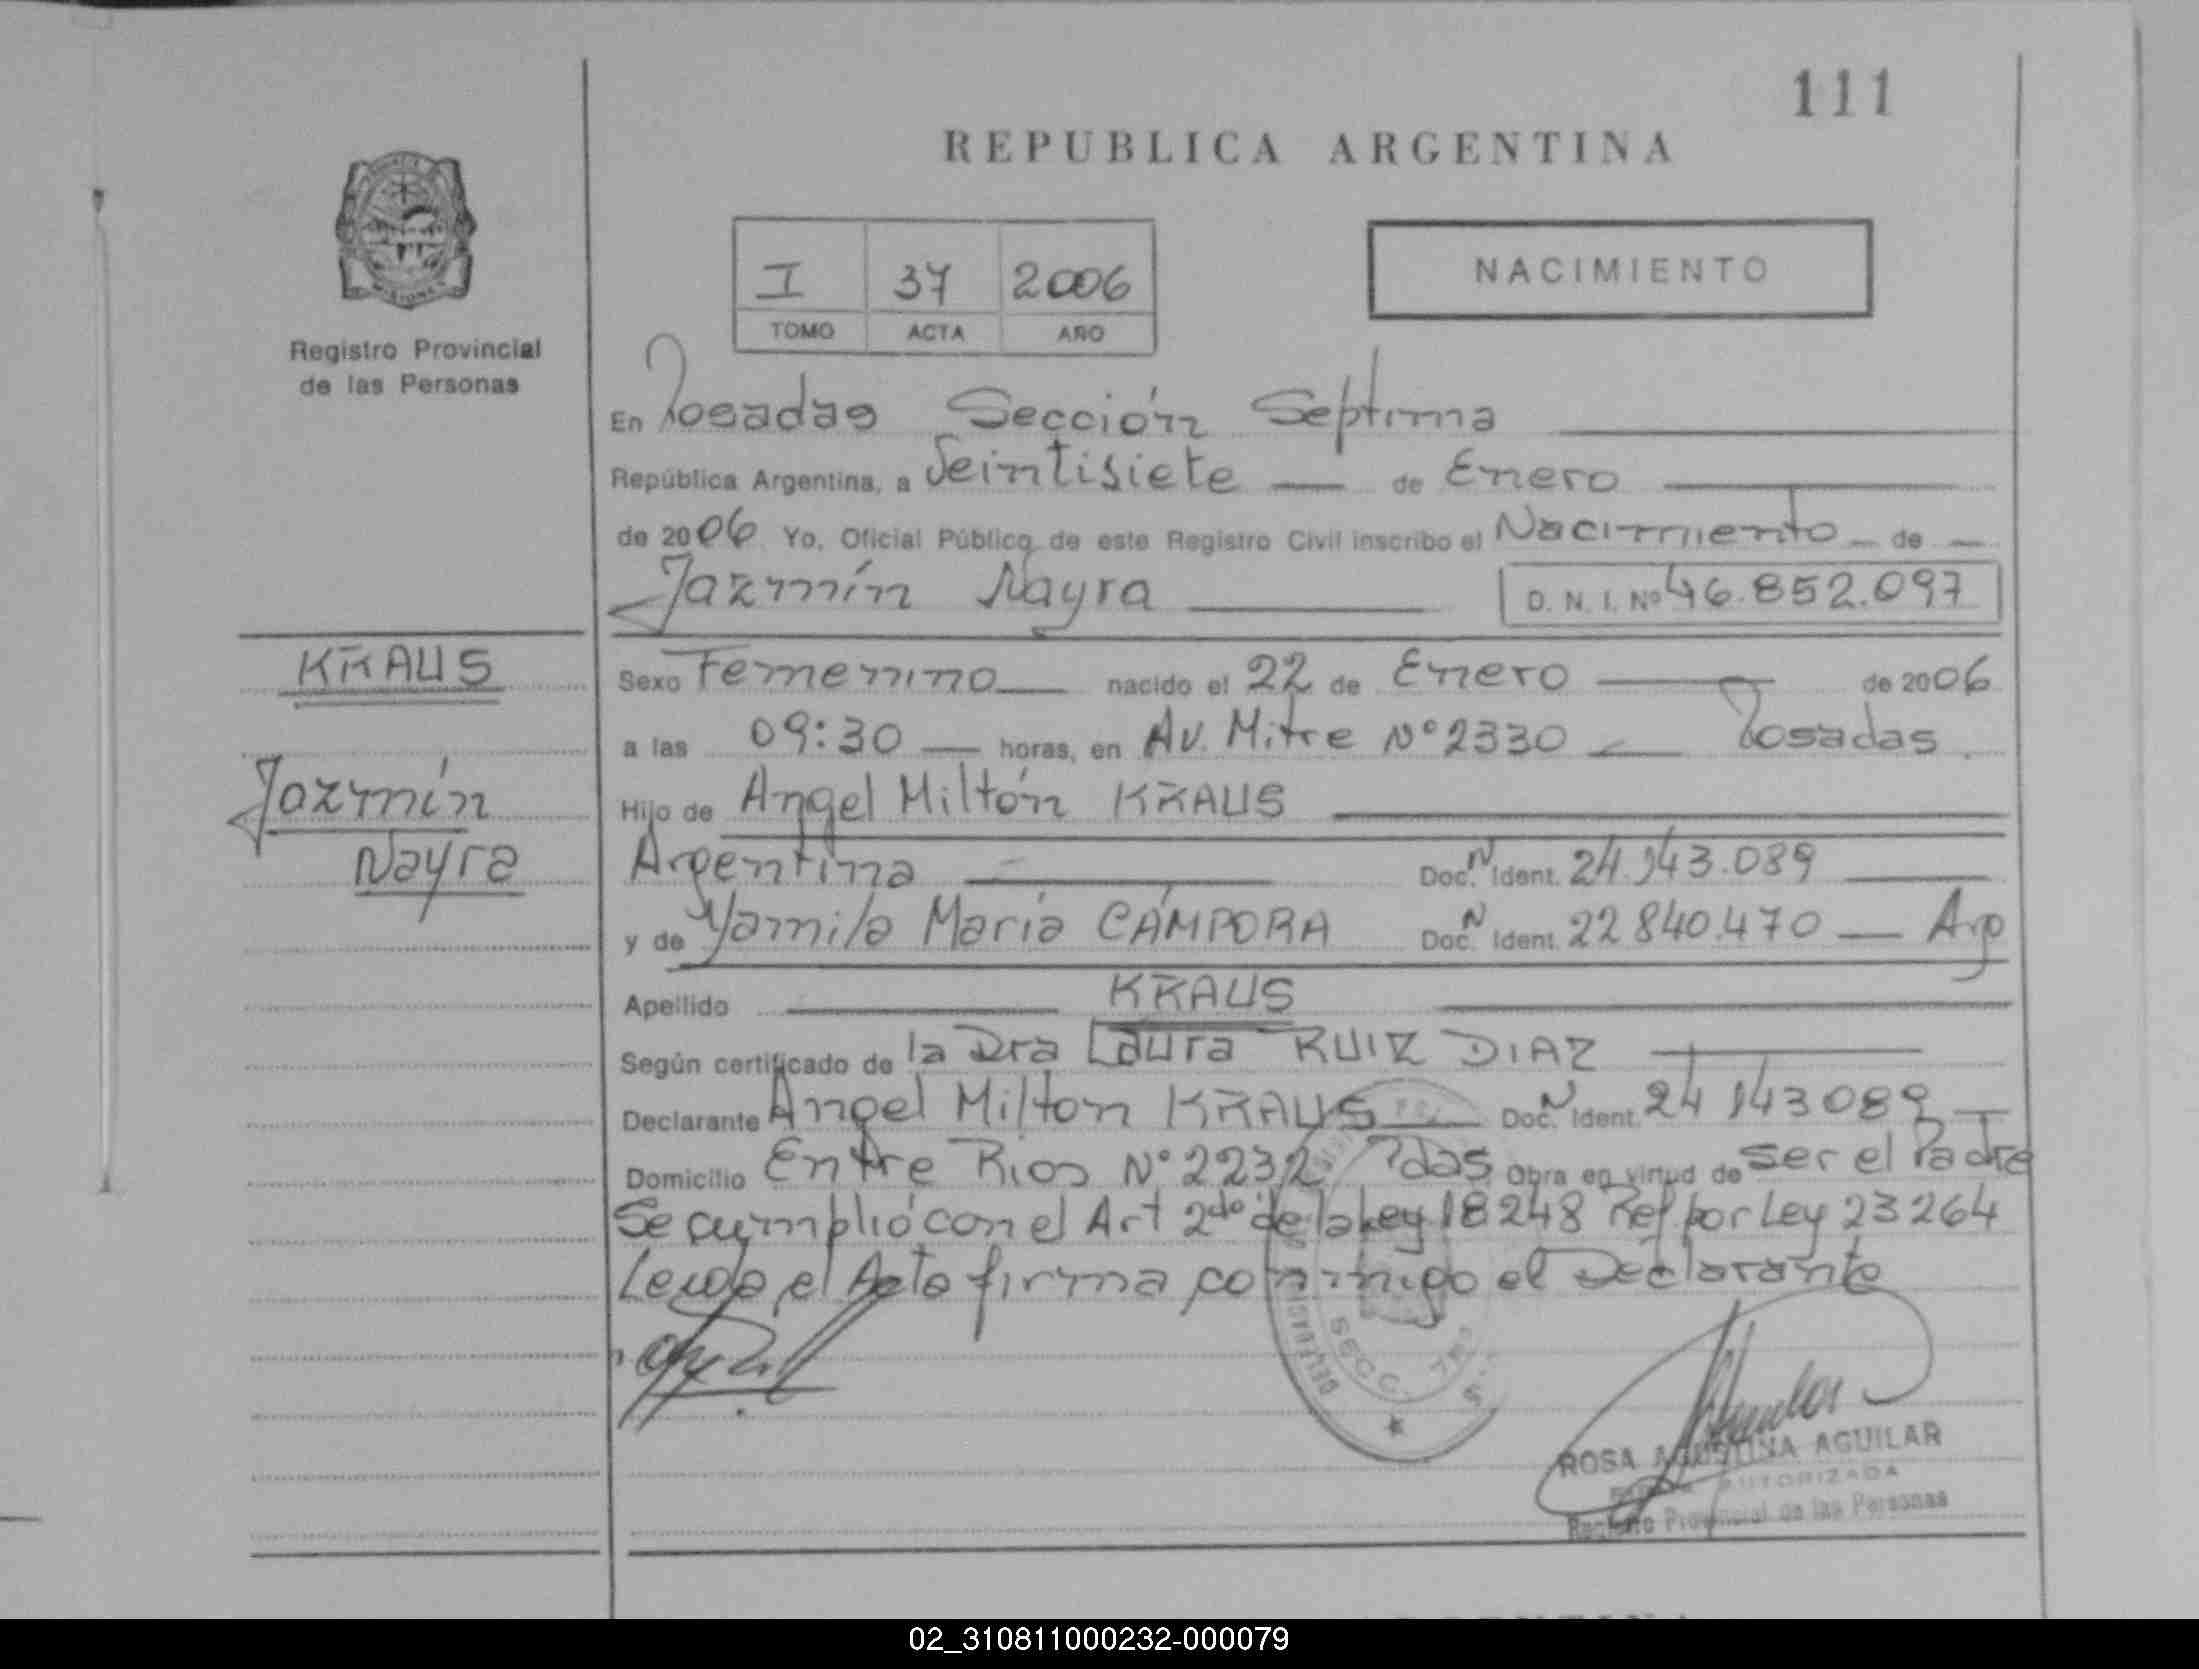 111
REPUBLICA ARGENTINA
I 37 2006
TOMO ACTA AÑO
NACIMIENTO
Registro Provincial
de las Personas
En Posadas Sección Septima
República Argentina, a Veintisiete de Enero
de 2006 Yo, Oficial Público de este Registro Civil inscribo el Nacimiento de
Jazmín Nayra D. N. I. Nº 46.852.097
KRAUS
Jazmín
Nayra
Sexo Femenino nacido el 22 de Enero de 2006
a las 09:30 horas, en Av. Mitre Nº 2330 Posadas.
Hijo de Angel Miltón KRAUS
Argentina Doc. N Ident. 24.143.089
y de Yamila María CÁMPORA Doc. N Ident. 22 840.470 Arg
Apellido KRAUS
Según certificado de la Dra Laura RUIZ DIAZ
Declarante Angel Milton KRAUS Doc. N Ident. 24 143 089
Domicilio Entre Rios Nº 2232 Pdas Obra en virtud de ser el Padre
Se cumplió con el Art 2do de la Ley 18248 Ref por Ley 23264
Leida el Acta firma conmigo el Declarante
SECC.
ROSA AGUSTINA AGUILAR
AUTORIZADA
Registro Provincial de las Personas
02_310811000232-000079